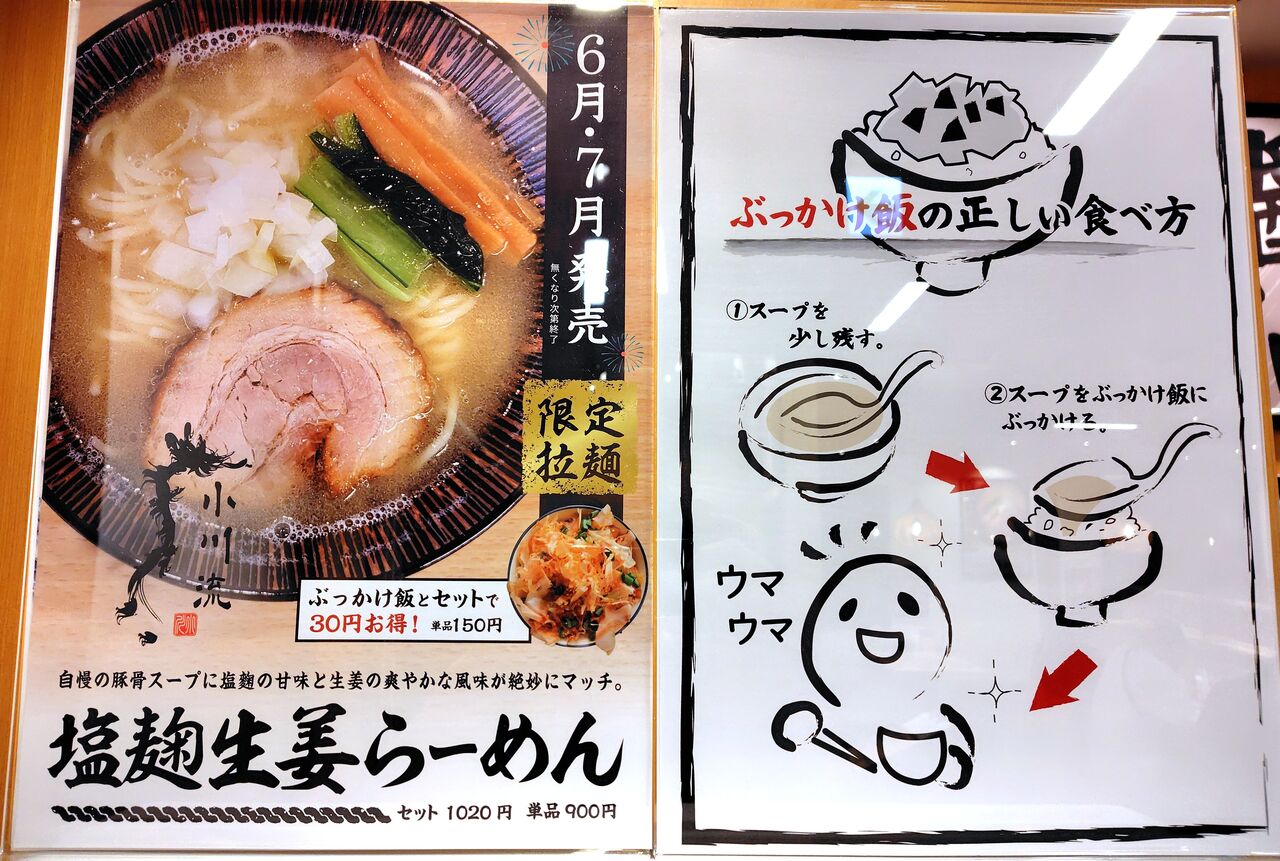 6月・7月発売
無くなり次第終了
限定
拉麺
小川流
ぶっかけ飯とセットで
30円お得! 単品150円
自慢の豚骨スープに塩麹の甘味と生姜の爽やかな風味が絶妙にマッチ。
塩麹生姜らーめん
セット 1020円 単品 900円
ぶっかけ飯の正しい食べ方
①スープを
少し残す。
②スープをぶっかけ飯に
ぶっかける。
ウマ
ウマ